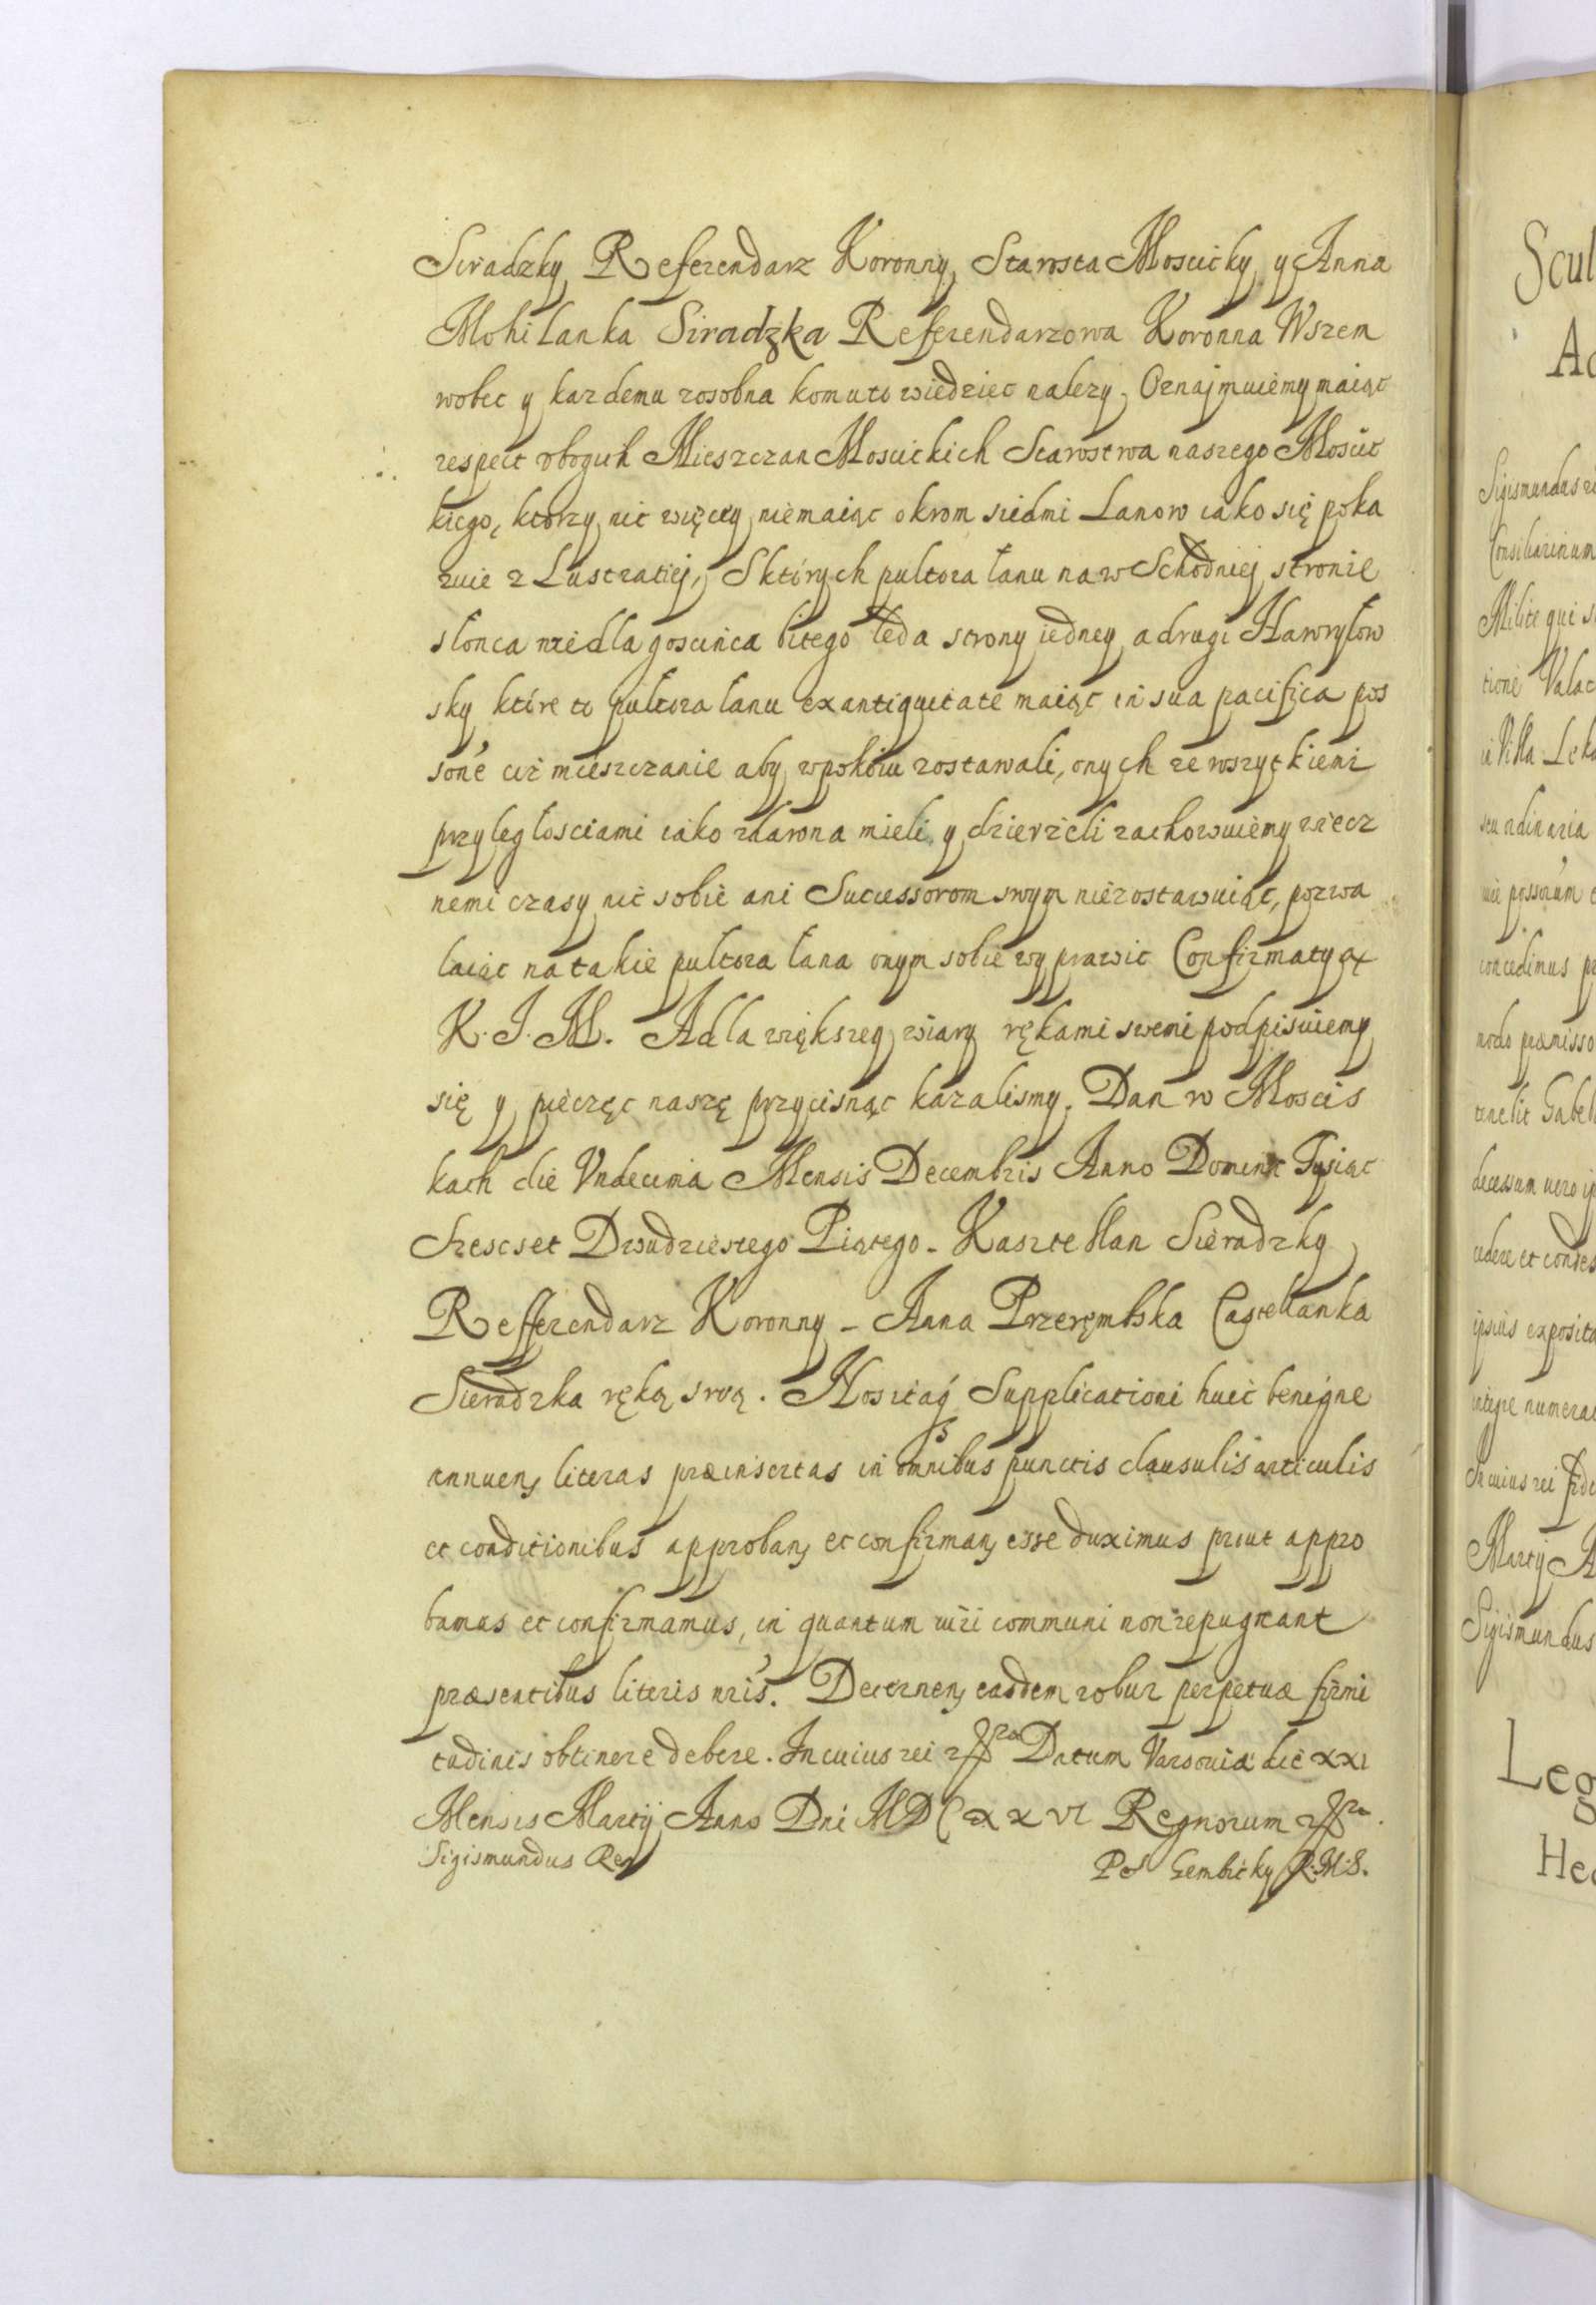 Siradzky Referendarz Koronny, Starosta Moscicky y Anna
Mohilanka Siradzka Referendarzowa Koronna Wszem
wobec y kazdemu zosobna komuto wiedziec nalezy, Oznajmuiemy maiąc
respect vbogich Mieszczan Moscickich Starostwa naszego Moscic
kiego, ktorzy nic więcey niemaiąc okrom siedmi Lanow iako się poka
zuie z Lustratiej, Sktórych pultora łanu na wSchodniej stronie
słonca wiedla goscinca bitego leda strony iedney a drugi Hawryłow
sky które to pułtora łanu ex antiquitate maiąc in sua pacifica pos
sone ciż mieszczanie aby wpokoiu zostawali, onych ze wszytkiemi
przyległosciami iako zdawna mieli y dzierżeli zachowuiemy wiecz
nemi czasy nic sobie ani Successorom swym niezostawuiąc, pozwa
laiąc na takie pultora łana onym sobie wyprawic Confirmatyą
K. J. M. A dla większey wiary rękami swemi podpisuiemy
się y pieczęc naszę przycisnąc kazalismy. Dan w Moscis
kach die Vndecima Mensis Decembris Anno Domini Tysiąc
Szescset Dwudziestego Piątego - Kasztellan Sieradzky
Refferendarz Koronny - Anna Przerębska Castellanka
Sieradzka ręką swą. Nos itaq́ Supplicationi huic benigne
annuen, literas præinsertas in omnibus punctis clausulis articulis
et conditionibus approban, et confirman, esse duximus prout appro
bamus et confirmamus, in quantum iuri communi non repugnant
præsentibus literis nris. Decernen, easdem robur perpetuæ firmi
tudinis obtinere debere. In cuius rei Datum Varsouiæ die xxi
Mensis Martij Anno Dni MDCxxvi Regnorum
Sigismundus Rex
Gembicky R.M.S.